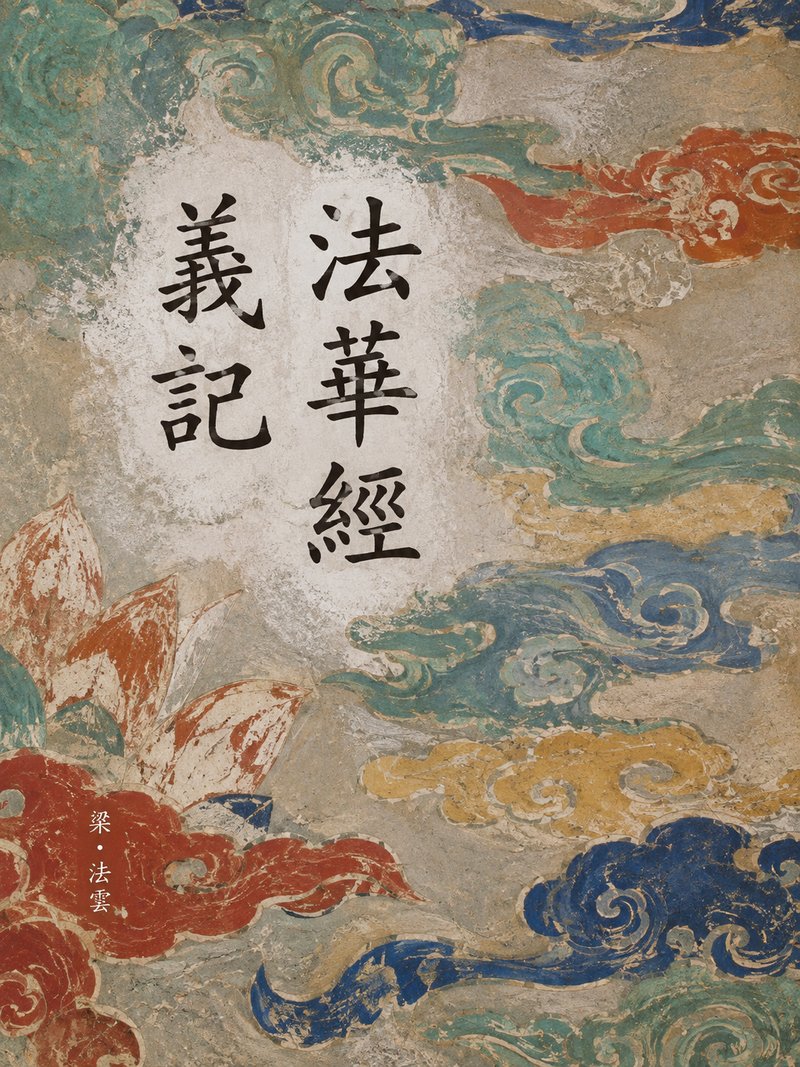 法華經
義記
梁・法雲